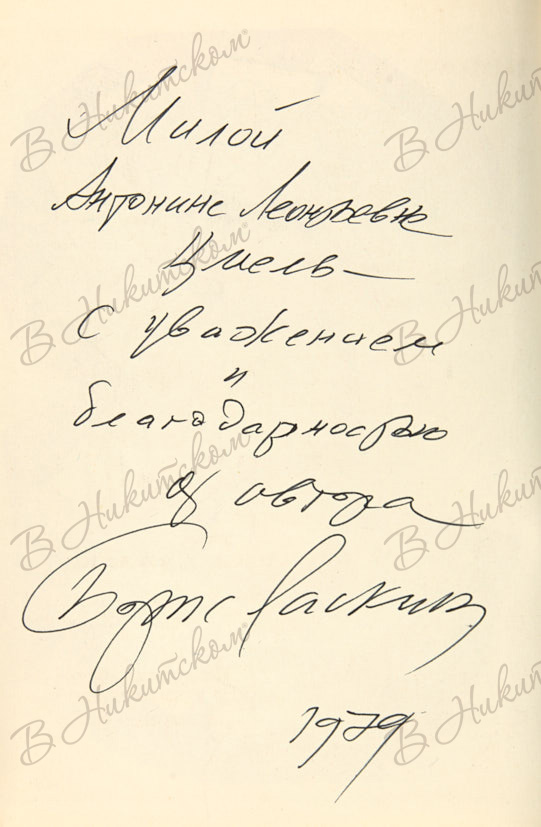 Милой
Антонине Леонтьевне
Цмель —
с уважением
и
благодарностью
от автора
Борис Раскин
1979
В Никитском